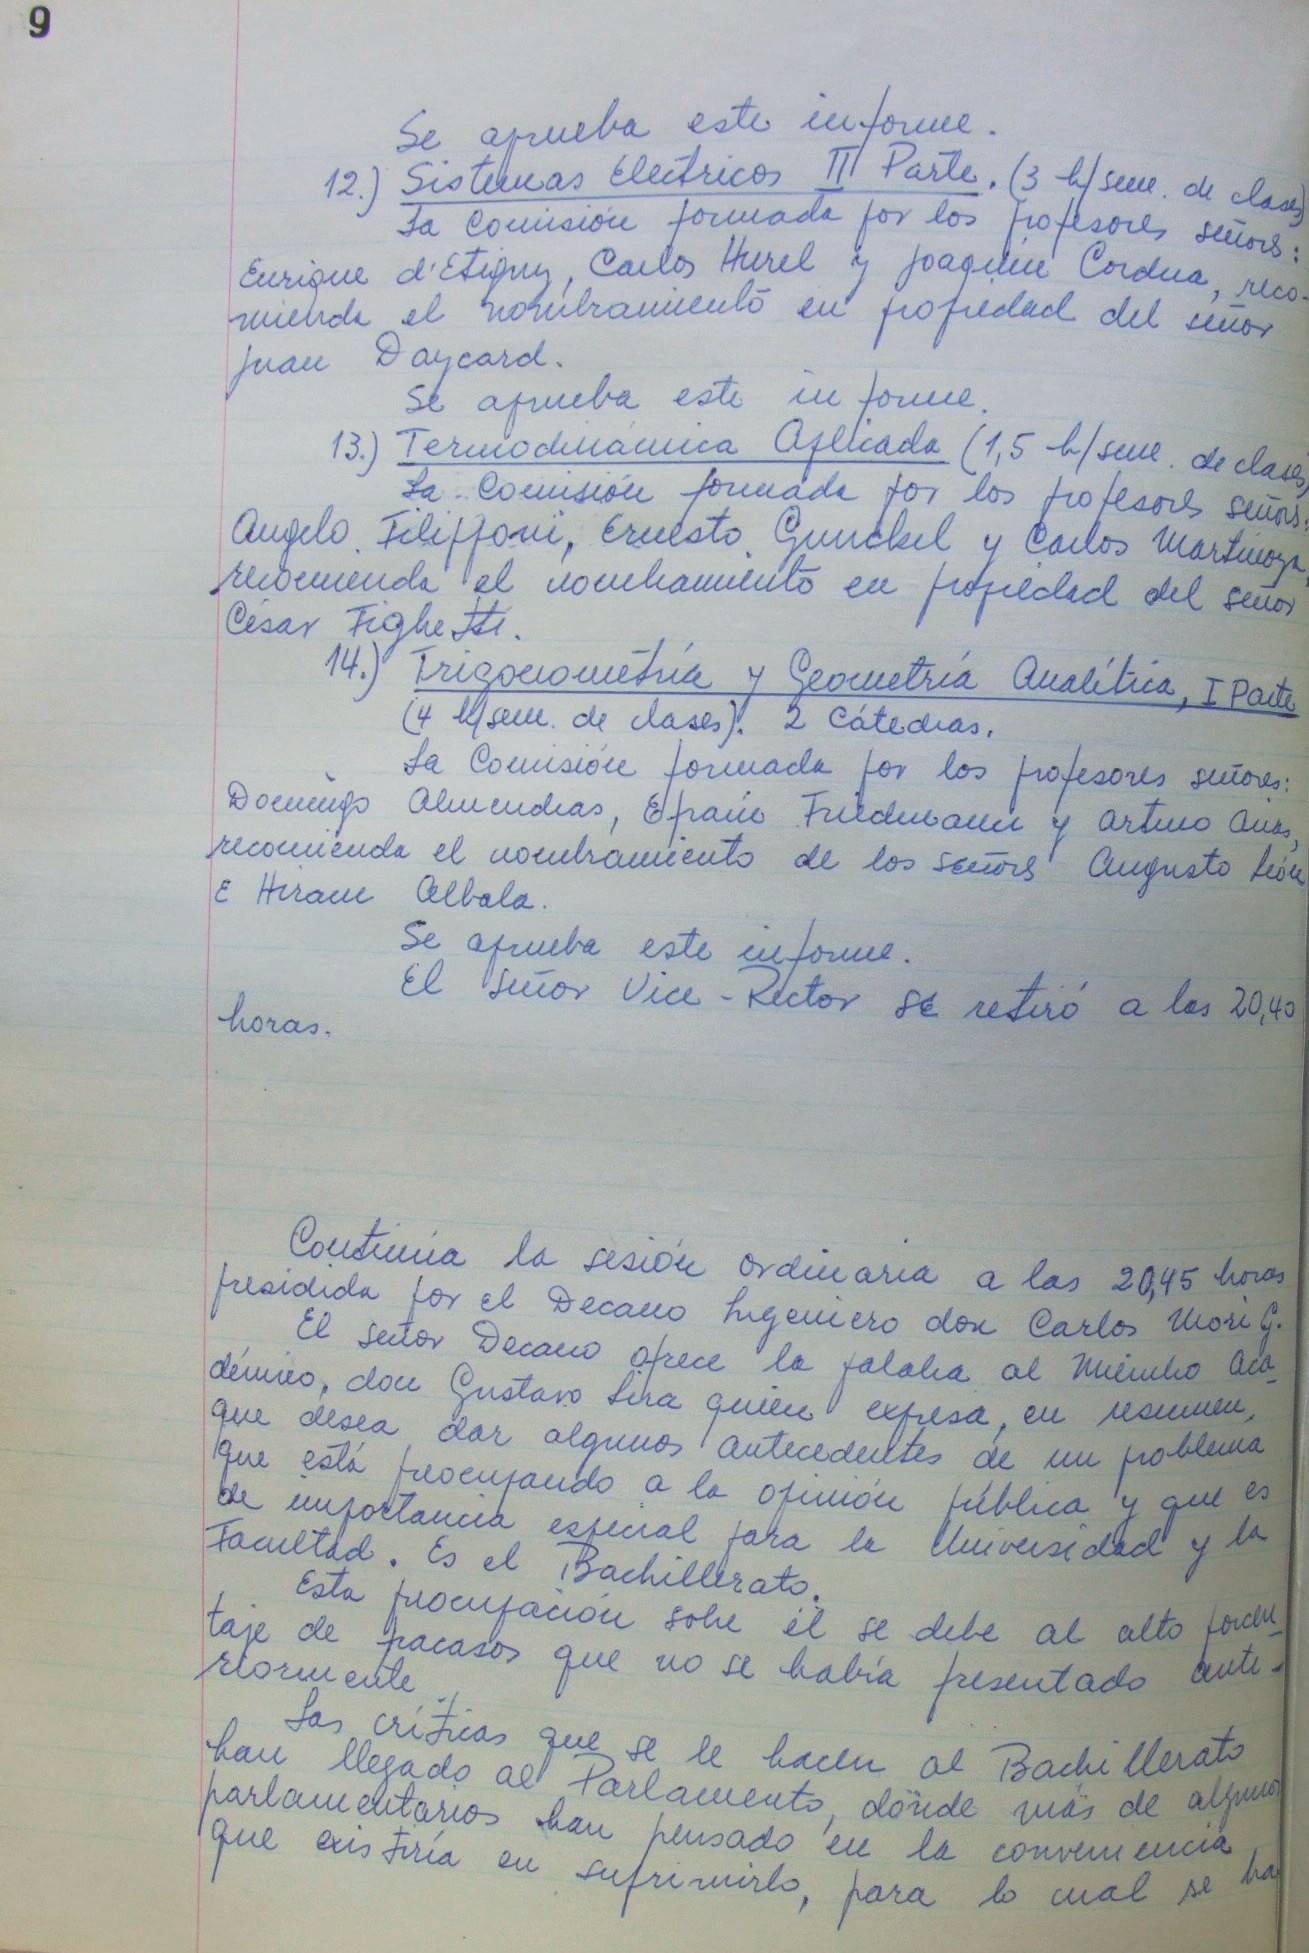 9
Se aprueba este informe.
12.) Sistemas Eléctricos III Parte. (3 h/sem. de clases)
La Comisión formada por los profesores señores:
Enrique d'Etigny, Carlos Hurel y Joaquín Cordua, reco-
mienda el nombramiento en propiedad del señor
Juan Daycard.
Se aprueba este informe.
13.) Termodinámica Aplicada (1,5 h/sem. de clases)
La Comisión formada por los profesores señores:
Angelo Filipponi, Ernesto Gunckel y Carlos Martinoya,
recomienda el nombramiento en propiedad del señor
César Fighetti.
14.) Trigonometría y Geometría Analítica, I Parte
(4 h/sem. de clases). 2 Cátedras.
La Comisión formada por los profesores señores:
Domingo Almendras, Efraín Friedmann y Arturo Arias,
recomienda el nombramiento de los señores Augusto León
E Hiram Albala.
Se aprueba este informe.
El señor Vice-Rector se retiró a las 20,40
horas.
Continúa la sesión ordinaria a las 20,45 horas
presidida por el Decano Ingeniero don Carlos Mori G.
El señor Decano ofrece la palabra al Miembro Aca-
démico, don Gustavo Lira quien expresa, en resumen,
que desea dar algunos antecedentes de un problema
que está preocupando a la opinión pública y que es
de importancia especial para la Universidad y la
Facultad. Es el Bachillerato.
Esta preocupación sobre él se debe al alto porcen-
taje de fracasos que no se había presentado ante-
riormente.
Las críticas que se le hacen al Bachillerato
han llegado al Parlamento, dónde más de algunos
parlamentarios han pensado en la conveniencia
que existiría en suprimirlo, para lo cual se ha